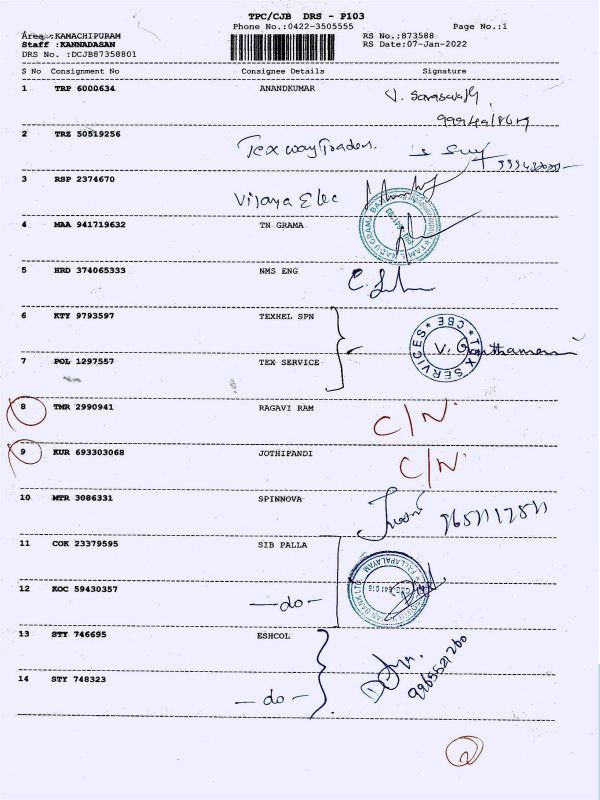 TPC/CJB DRS - P103
Phone No.:0422-3505555 Page No.:1
Area :KAMACHIPURAM RS No.:873588
Staff :KANNADASAN RS Date:07-Jan-2022
DRS No. :DCJB87358801
S No Consignment No Consignee Details Signature
1 TRP 6000634 ANANDKUMAR V. Saraswathy
2 TRZ 50519256 Tex way Traders.
3 RSP 2374670 Vijaya Elec
4 MAA 941719632 TN GRAMA
5 HRD 374065333 NMS ENG
6 KTY 9793597 TEXHEL SPN
7 POL 1297557 TEX SERVICE TEX SERVICES * CBE *
8 TMR 2990941 RAGAVI RAM C/N
9 KUR 693303068 JOTHIPANDI C/N
10 MTR 3086331 SPINNOVA
11 COK 23379595 SIB PALLA
12 KOC 59430357 -do-
13 STY 746695 ESHCOL
9965521260
14 STY 748323 -do-
2